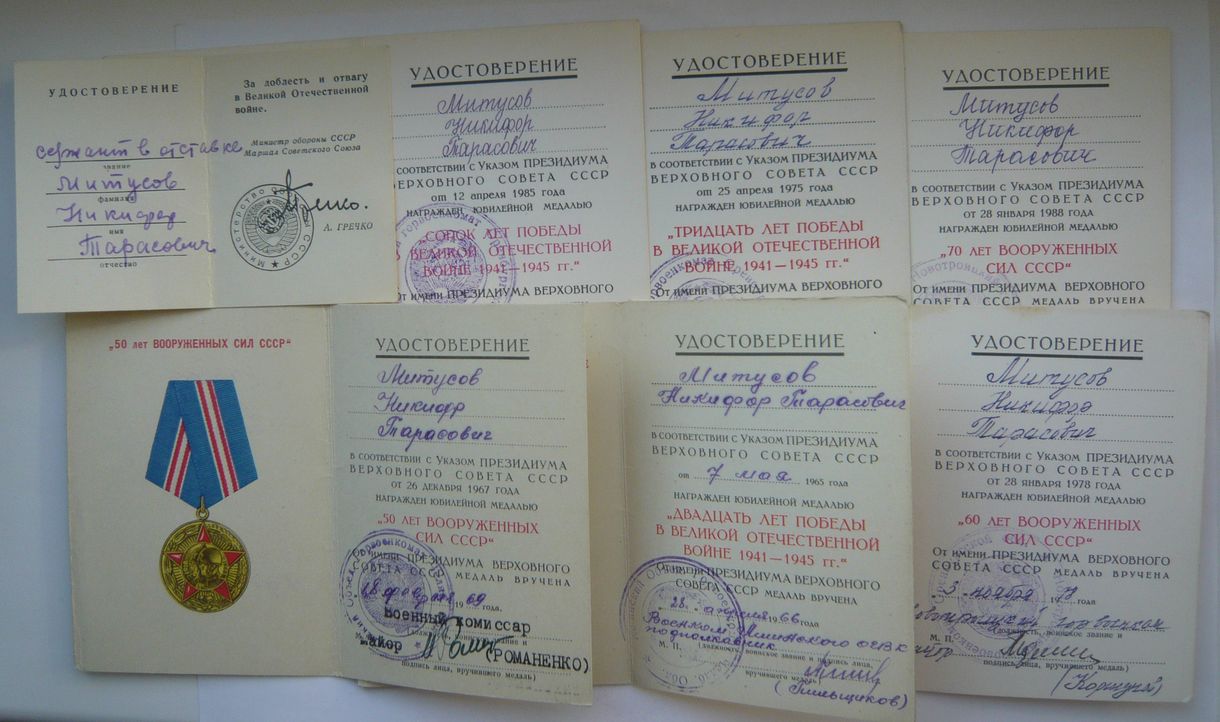 УДОСТОВЕРЕНИЕ
сержант в отставке
звание
Митусов
фамилия
Никифор
имя
Тарасович
отчество
За доблесть и отвагу
в Великой Отечественной
войне.
Министр обороны СССР
Маршал Советского Союза
Министерство обороны СССР
А. ГРЕЧКО
УДОСТОВЕРЕНИЕ
Митусов
Никифор
Тарасович
в соответствии с Указом ПРЕЗИДИУМА
ВЕРХОВНОГО СОВЕТА СССР
от 12 апреля 1985 года
НАГРАЖДЕН ЮБИЛЕЙНОЙ МЕДАЛЬЮ
„СОРОК ЛЕТ ПОБЕДЫ
В ВЕЛИКОЙ ОТЕЧЕСТВЕННОЙ
ВОЙНЕ 1941—1945 гг.“
От имени ПРЕЗИДИУМА ВЕРХОВНОГО
УДОСТОВЕРЕНИЕ
Митусов
Никифор
Тарасович
в соответствии с Указом ПРЕЗИДИУМА
ВЕРХОВНОГО СОВЕТА СССР
от 25 апреля 1975 года
НАГРАЖДЕН ЮБИЛЕЙНОЙ МЕДАЛЬЮ
„ТРИДЦАТЬ ЛЕТ ПОБЕДЫ
В ВЕЛИКОЙ ОТЕЧЕСТВЕННОЙ
ВОЙНЕ 1941—1945 гг.“
От имени ПРЕЗИДИУМА ВЕРХОВНОГО
СОВЕТА СССР МЕДАЛЬ ВРУЧЕНА
УДОСТОВЕРЕНИЕ
Митусов
Никифор
Тарасович
в соответствии с Указом ПРЕЗИДИУМА
ВЕРХОВНОГО СОВЕТА СССР
от 28 января 1988 года
НАГРАЖДЕН ЮБИЛЕЙНОЙ МЕДАЛЬЮ
„70 ЛЕТ ВООРУЖЕННЫХ
СИЛ СССР“
От имени ПРЕЗИДИУМА ВЕРХОВНОГО
СОВЕТА СССР МЕДАЛЬ ВРУЧЕНА
„50 лет ВООРУЖЕННЫХ СИЛ СССР“
УДОСТОВЕРЕНИЕ
Митусов
Никифор
Тарасович
в соответствии с Указом ПРЕЗИДИУМА
ВЕРХОВНОГО СОВЕТА СССР
от 26 декабря 1967 года
НАГРАЖДЕН ЮБИЛЕЙНОЙ МЕДАЛЬЮ
„50 ЛЕТ ВООРУЖЕННЫХ
СИЛ СССР“
От имени ПРЕЗИДИУМА ВЕРХОВНОГО
СОВЕТА СССР МЕДАЛЬ ВРУЧЕНА
18 февраля 1969 года.
Военный комиссар
майор (РОМАНЕНКО)
подпись лица, вручившего медаль)
УДОСТОВЕРЕНИЕ
Митусов
Никифор Тарасович
в соответствии с Указом ПРЕЗИДИУМА
ВЕРХОВНОГО СОВЕТА СССР
от 7 мая 1965 года
НАГРАЖДЕН ЮБИЛЕЙНОЙ МЕДАЛЬЮ
„ДВАДЦАТЬ ЛЕТ ПОБЕДЫ
В ВЕЛИКОЙ ОТЕЧЕСТВЕННОЙ
ВОЙНЕ 1941—1945 гг.“
От имени ПРЕЗИДИУМА ВЕРХОВНОГО
СОВЕТА СССР МЕДАЛЬ ВРУЧЕНА
„28“ апреля 1966 года
Военком
подполковник
М. П. (должность, воинское звание и подпись лица,
вручившего медаль)
УДОСТОВЕРЕНИЕ
Митусов
Никифор
Тарасович
в соответствии с Указом ПРЕЗИДИУМА
ВЕРХОВНОГО СОВЕТА СССР
от 28 января 1978 года
НАГРАЖДЕН ЮБИЛЕЙНОЙ МЕДАЛЬЮ
„60 ЛЕТ ВООРУЖЕННЫХ
СИЛ СССР“
От имени ПРЕЗИДИУМА ВЕРХОВНОГО
СОВЕТА СССР МЕДАЛЬ ВРУЧЕНА
3 ноября 1979 года
(должность, воинское звание и
М. П.
подпись лица, вручившего медаль)